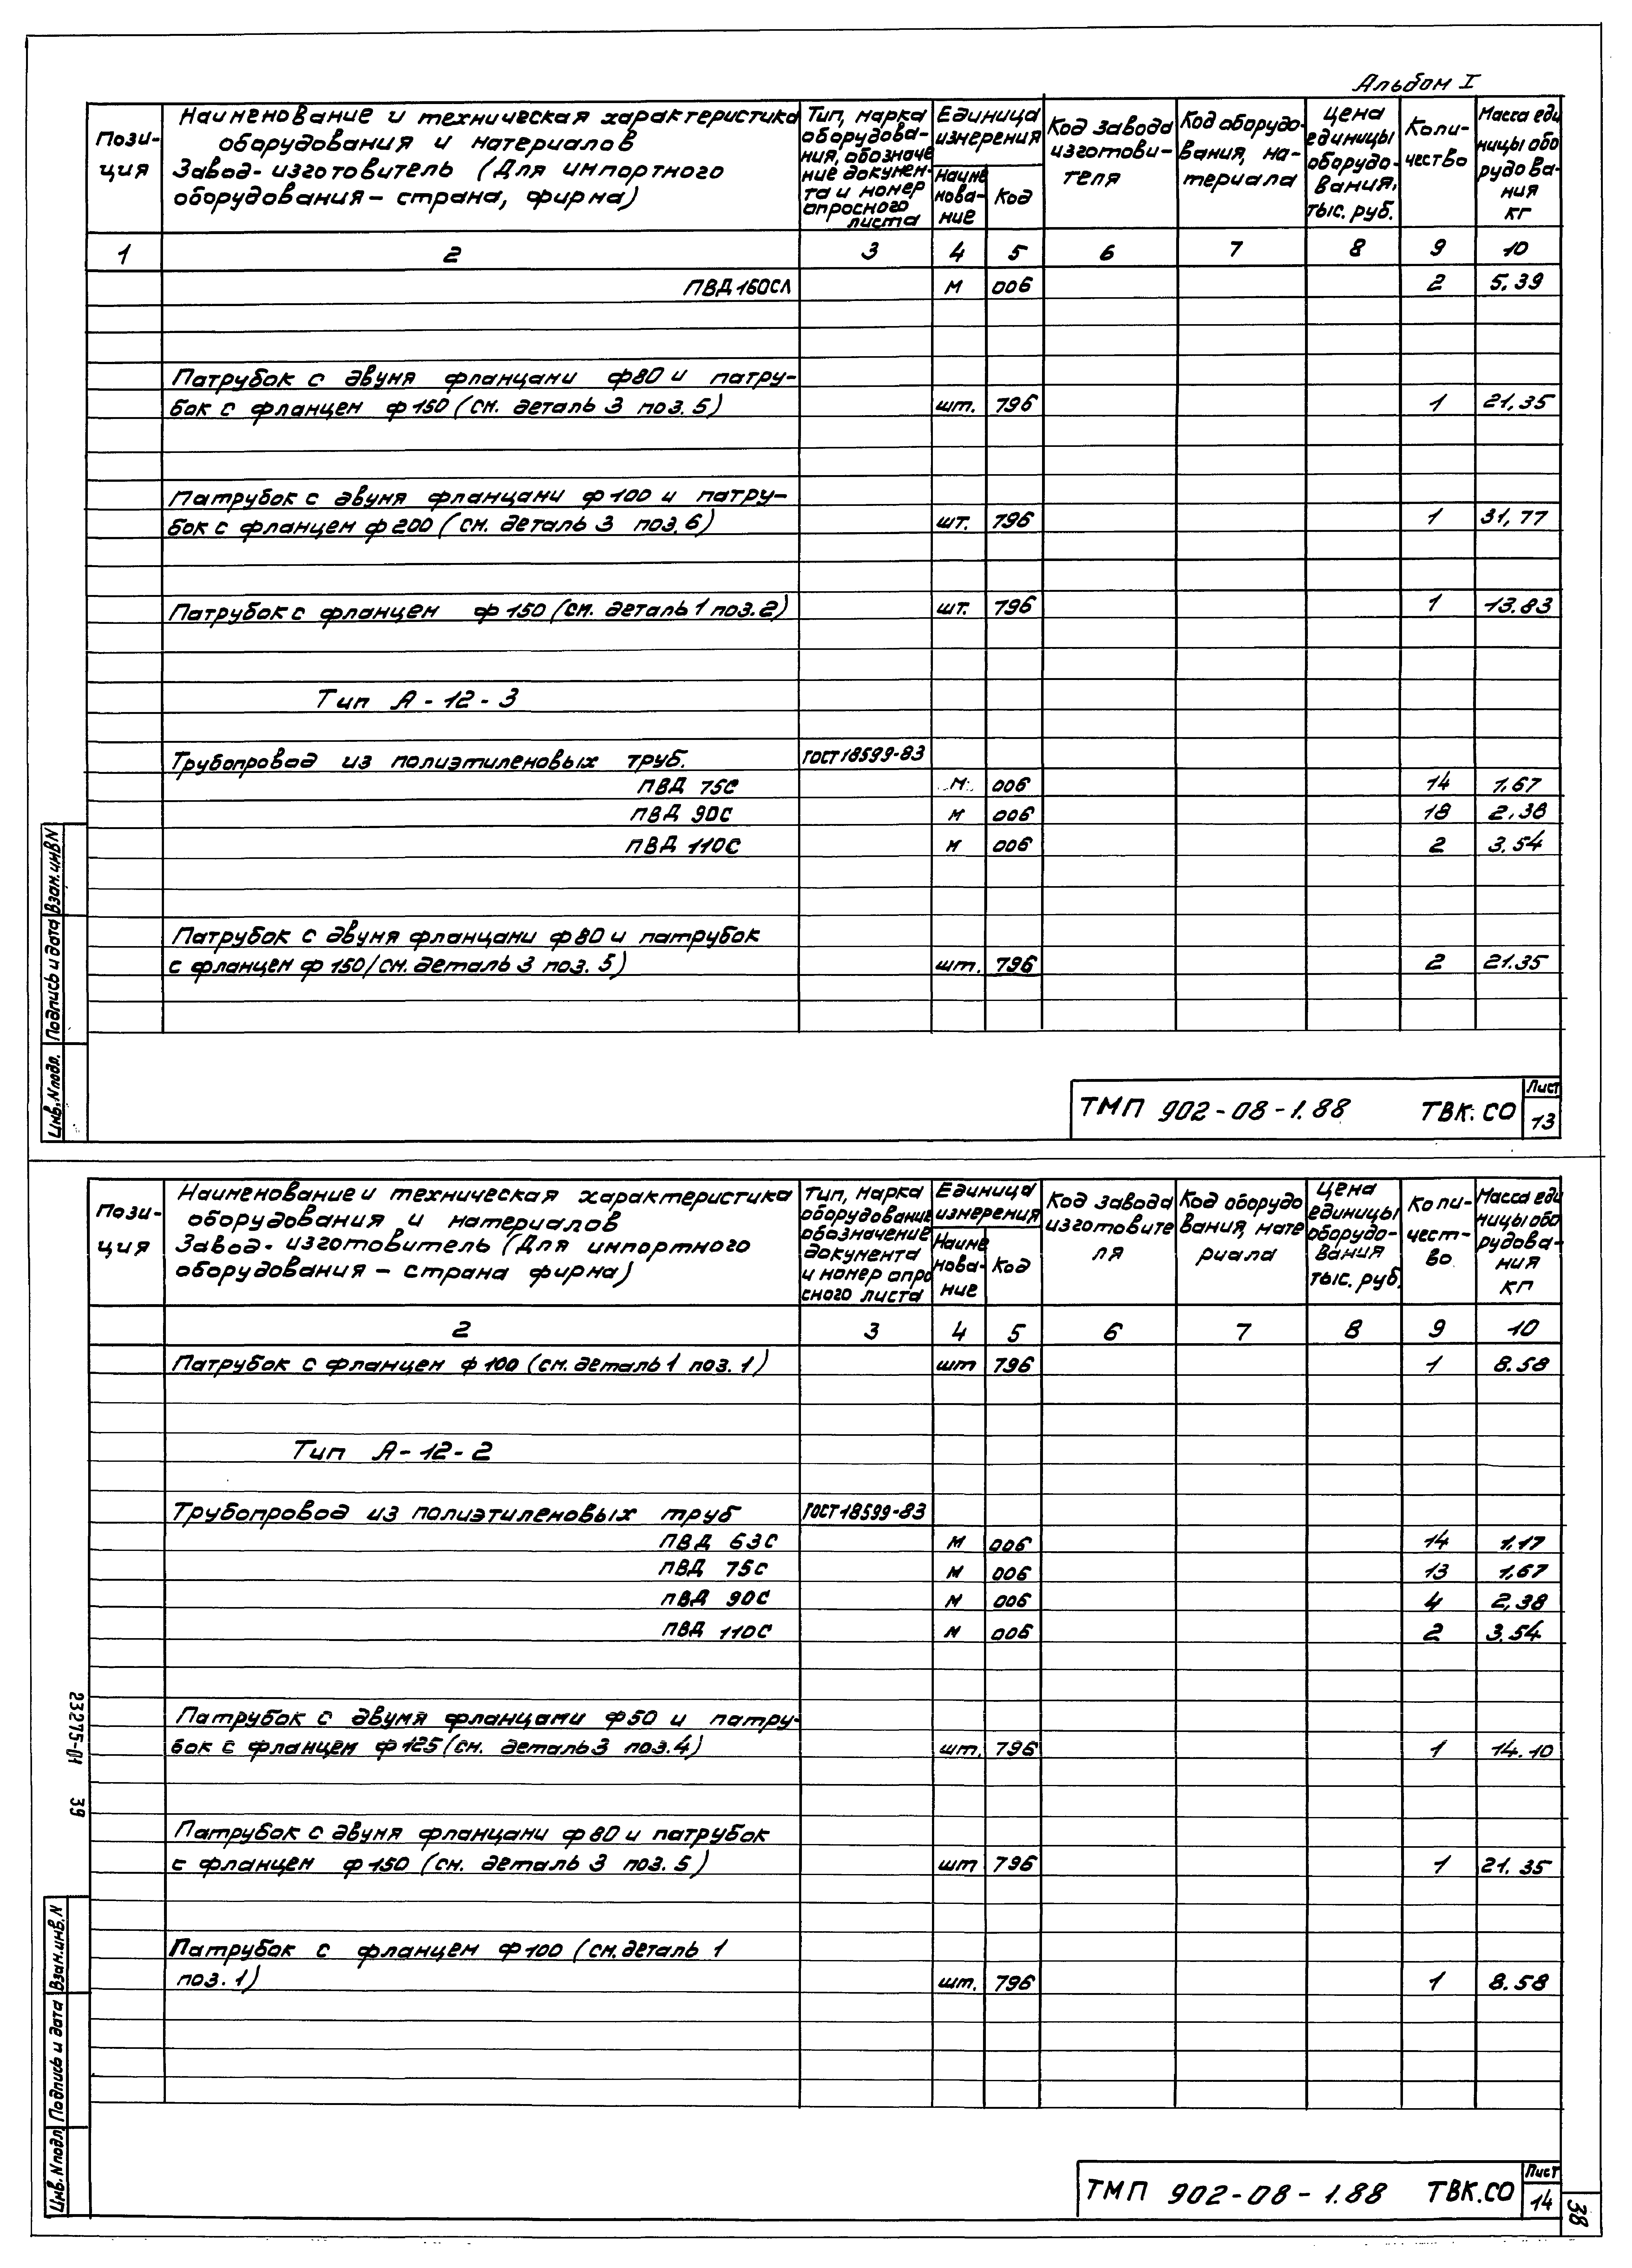 Альбом I
Пози-
ция
Наименование и техническая характеристика
оборудования и материалов
Завод-изготовитель (Для импортного
оборудования – страна, фирма)
Тип, марка
оборудова-
ния, обозначе
ние докумен-
та и номер
опросного
листа
Единица
измерения
Наиме
нова-
ние
Код
Код завода
изготови-
теля
Код оборудо-
вания, ма-
териала
Цена
единицы
оборудо-
вания,
тыс. руб.
Коли-
чество
Масса еди
ницы обо
рудова-
ния
кг
1 2 3 4 5 6 7 8 9 10
ПВД 160СЛ м 006 2 5,39
Патрубок с двумя фланцами ф80 и патру-
бок с фланцем ф150 (см. деталь 3 поз. 5) шт. 796 1 21,35
Патрубок с двумя фланцами ф100 и патру-
бок с фланцем ф200 (см. деталь 3 поз. 6) шт. 796 1 31,77
Патрубок с фланцем ф150 (см. деталь 1 поз. 2) шт. 796 1 13.83
Тип А-12-3
Трубопровод из полиэтиленовых труб. ГОСТ 18599-83
ПВД 75С м 006 14 1,67
ПВД 90С м 006 18 2,38
ПВД 110С м 006 2 3,54
Патрубок с двумя фланцами ф80 и патрубок
с фланцем ф150 (см. деталь 3 поз. 5) шт. 796 2 21.35
Взам. инв N
Подпись и дата
Инв. N подл.
ТМП 902-08-1.88 ТВК.СО
Лист
13
Пози-
ция
Наименование и техническая характеристика
оборудования и материалов
Завод-изготовитель (Для импортного
оборудования – страна фирма)
Тип, марка
оборудование
обозначение
документа
и номер опро
сного листа
Единица
измерения
Наиме
нова-
ние
Код
Код завода
изготовите
ля
Код оборудо
вания, мате
риала
Цена
единицы
оборудо-
вания
тыс. руб.
Коли-
чест-
во
Масса еди
ницы обо
рудова-
ния
кг
2 3 4 5 6 7 8 9 10
Патрубок с фланцем ф100 (см. деталь 1 поз. 1) шт 796 1 8.58
Тип А-12-2
Трубопровод из полиэтиленовых труб ГОСТ 18599-83
ПВД 63С м 006 14 1,17
ПВД 75С м 006 13 1,67
ПВД 90С м 006 4 2,38
ПВД 110С м 006 2 3,54
Патрубок с двумя фланцами ф50 и патру-
бок с фланцем ф125 (см. деталь 3 поз. 4) шт. 796 1 14.10
Патрубок с двумя фланцами ф80 и патрубок
с фланцем ф150 (см. деталь 3 поз. 5) шт 796 1 21.35
Патрубок с фланцем ф100 (см. деталь 1
поз. 1) шт. 796 1 8.58
23275-01 39
Взам. инв. N
Подпись и дата
Инв. N подл
ТМП 902-08-1.88 ТВК.СО
Лист
14
38